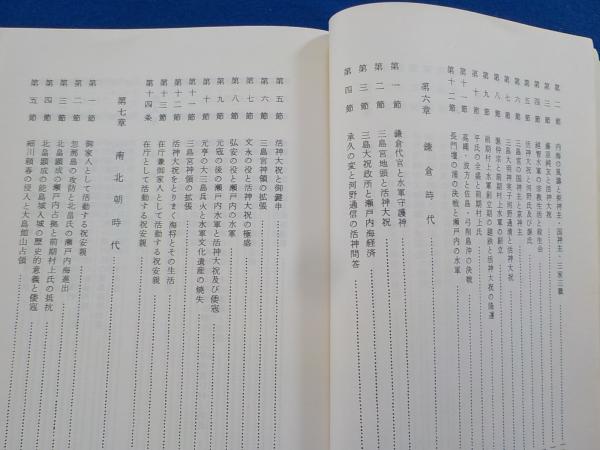 第二節 内海の風濤と大神主・国神主・三家三職
第三節 藤原純友と活神大祝
第四節 越智水軍の宗教生活と放生会
第五節 活神大祝と河野氏及び源氏
第六節 三島宮の国神主と京神主
第七節 三島大明神氏子河野通清と活神大祝
第八節 源仲宗と前期村上水軍の創立
第九節 前期村上水軍創立期の建鉄と活神大祝の隆運
第十節 平氏の全盛と前期村上氏
第十一節 高縄・波方と佐島・弓削島沖の決戦
第十二節 長門壇の浦の決戦と瀬戸内の水軍
第六章 鎌倉時代
第一節 鎌倉代官と水軍守護神
第二節 三島宮地頭と活神大祝
第三節 三島大祝政所と瀬戸内海経済
第四節 承久の変と河野通信の活神問答
第五節 活神大祝と御鍵串
第六節 三島宮神領の拡張
第七節 文永の役と活神大祝の極盛
第八節 弘安の役と瀬戸内の水軍
第九節 元寇の後の瀬戸内水軍と活神大祝及び倭寇
第十節 元亨の大三島兵火と水軍文化遺産の焼失
第十一節 三島宮神領の拡張
第十二節 活神大祝をとりまく海村とその生活
第十三節 在庁兼御家人として活動する祝安親
第十四条 在庁として活動する祝安親
第七章 南北朝時代
第一節 御家人として活動する祝安親
第二節 忽那島の攻防と北畠氏の瀬戸内海進出
第三節 北畠顕成の瀬戸内占拠と前期村上氏の抵抗
第四節 北畠顕成の能島城入城の歴史的意義と倭寇
第五節 細川頼春の侵入と大島館山占領